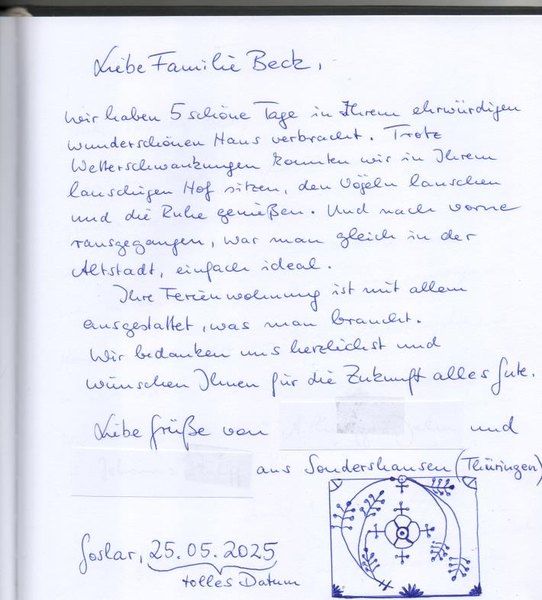 Liebe Familie Beck,
wir haben 5 schöne Tage in Ihrem ehrwürdigen
wunderschönen Haus verbracht. Trotz
Wetterschwankungen konnten wir in Ihrem
lauschigen Hof sitzen, den Vögeln lauschen
und die Ruhe genießen. Und nach vorne
rausgegangen, war man gleich in der
Altstadt, einfach ideal.
Ihre Ferienwohnung ist mit allem
ausgestattet, was man braucht.
Wir bedanken uns herzlichst und
wünschen Ihnen für die Zukunft alles Gute.
Liebe Grüße von und
aus Sondershausen (Thüringen)
Goslar, 25.05.2025
tolles Datum